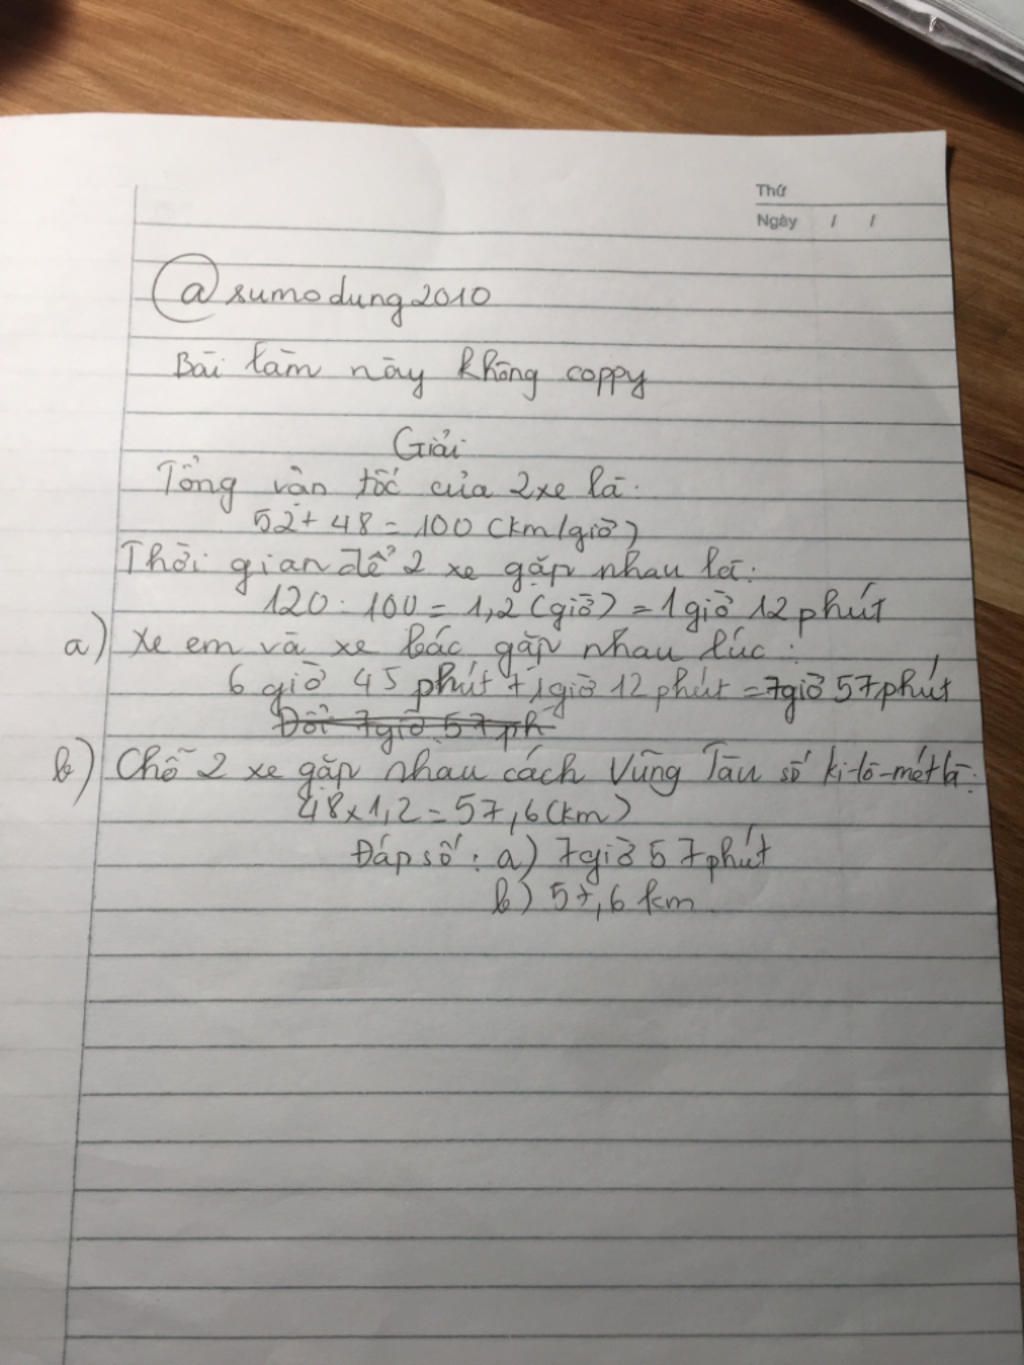 Thứ
Ngày / /
@sumodung2010
Bài làm này không coppy
Giải
Tổng vận tốc của 2 xe là:
52 + 48 = 100 (km/giờ)
Thời gian để 2 xe gặp nhau là:
120 : 100 = 1,2 (giờ) = 1 giờ 12 phút
a) Xe em và xe bác gặp nhau lúc:
6 giờ 45 phút + 1 giờ 12 phút = 7 giờ 57 phút
Đổi 7 giờ 57 ph
b) Chỗ 2 xe gặp nhau cách Vũng Tàu số ki-lô-mét là:
48 x 1,2 = 57,6 (km)
Đáp số: a) 7 giờ 57 phút
b) 57,6 km